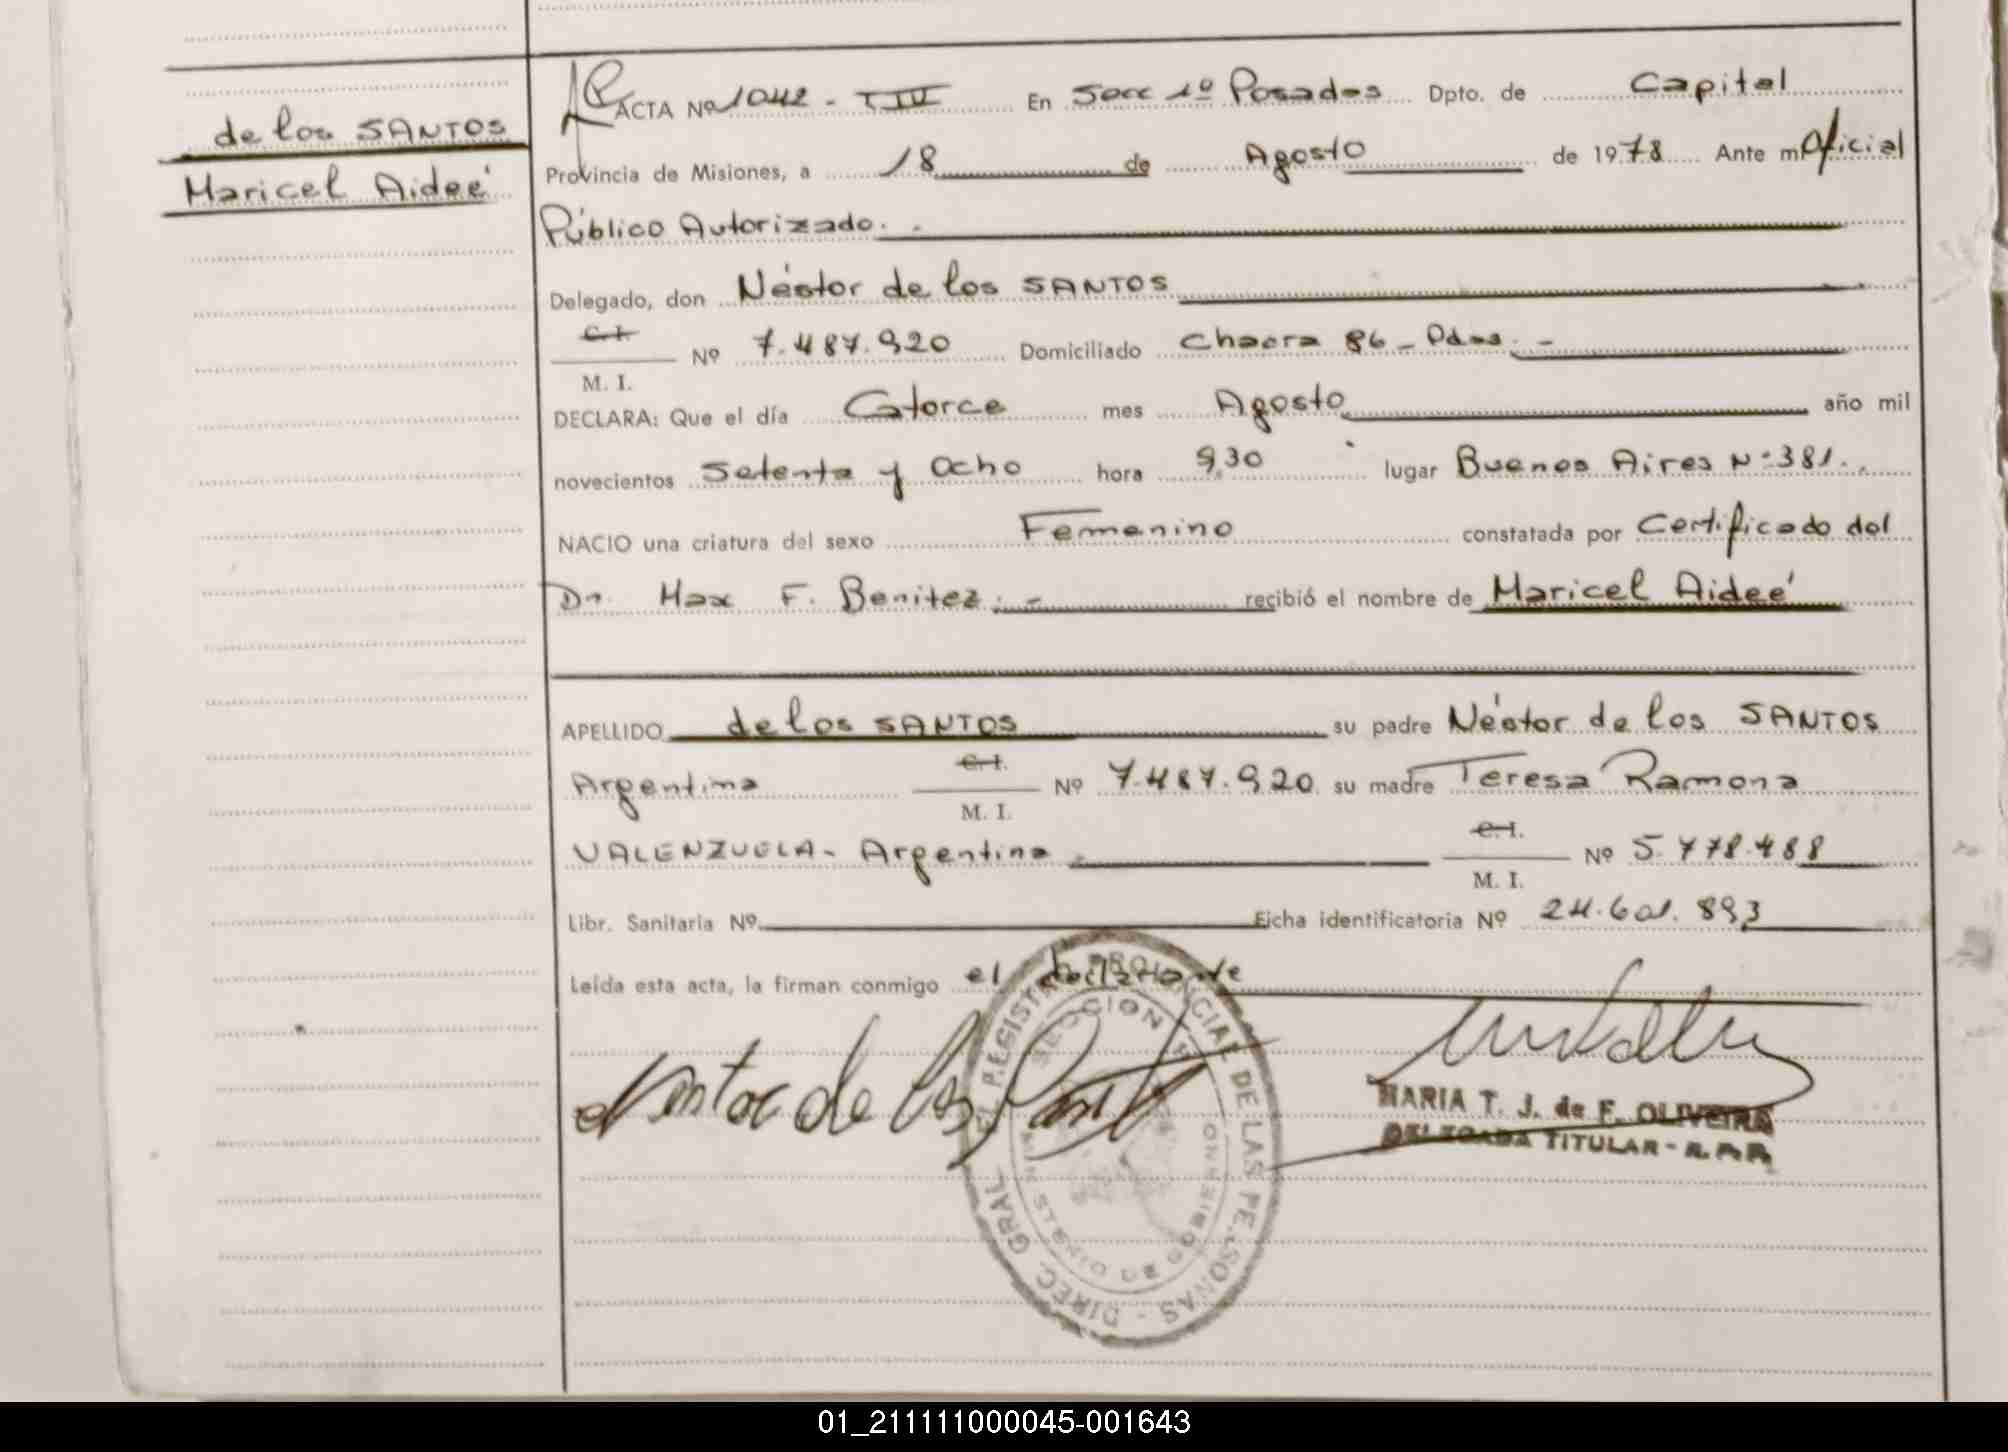 de los SANTOS
Maricel Aideé
ACTA Nº 1042 - T IV En Secc 1º Posadas Dpto. de Capital
Provincia de Misiones, a 18 de Agosto de 1978 Ante mí Oficial
Público Autorizado. -
Delegado, don Néstor de los SANTOS
C.I.
M. I. Nº 7.487.920 Domiciliado Chacra 86 - Pdas. -
DECLARA: Que el día Catorce mes Agosto año mil
novecientos Setenta y Ocho hora 9,30 lugar Buenos Aires Nº 381.
NACIO una criatura del sexo Femenino constatada por Certificado del
Dr. Max F. Benitez. - recibió el nombre de Maricel Aideé
APELLIDO de los SANTOS su padre Néstor de los SANTOS
Argentina C.I. M. I. Nº 7.487.920 su madre Teresa Ramona
VALENZUELA - Argentina C.I. M. I. Nº 5.778.488
Libr. Sanitaria Nº Ficha identificatoria Nº 24.601.893
Leída esta acta, la firman conmigo el declarante
Nestor de los Santos
MARIA T. J. de F. OLIVEIRA
DELEGADA TITULAR - R.P.P.
DIREC. GRAL. DEL REGISTRO PROVINCIAL DE LAS PERSONAS
SECCION 1ª
MINIST. DE GOBIERNO
01_211111000045-001643